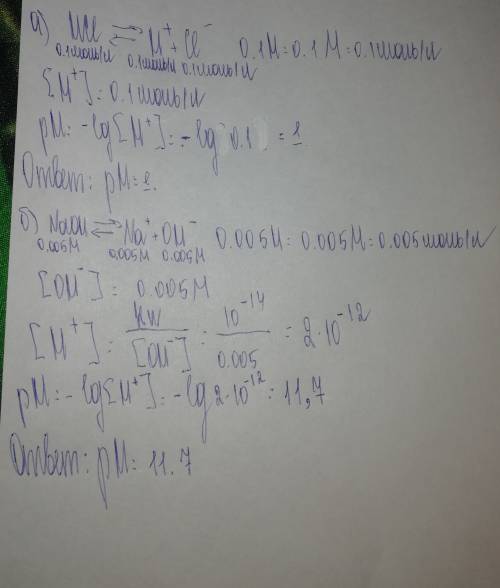 а) HCl ⇄ H⁺ + Cl⁻ 0.1H = 0.1M = 0.1моль/л
0.1моль/л 0.1моль/л 0.1моль/л
[H⁺] = 0.1моль/л
pH = -lg[H⁺] = -lg 0.1 = 1
Ответ: pH = 1.
б) NaOH ⇄ Na⁺ + OH⁻ 0.005H = 0.005M = 0.005моль/л
0.005M 0.005M 0.005M
[OH⁻] = 0.005M
[H⁺] = kw/[OH⁻] = 10⁻¹⁴/0.005 = 2·10⁻¹²
pH = -lg[H⁺] = -lg 2·10⁻¹² = 11,7
Ответ: pH = 11.7